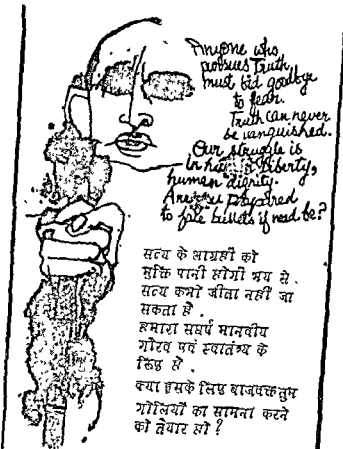 Anyone who
pursues Truth
must bid goodbye
to fear.
Truth can never
be vanquished.
Our struggle is
liberty,
human dignity.
Are you prepared
to face bullets if need be?
सत्य के आग्रही को
मुक्ति पानी होगी भय से.
सत्य कभी जीता नहीं जा
सकता है.
हमारा संघर्ष मानवीय
गौरव एवं स्वातंत्र्य के
लिए है.
क्या इसके लिए तुम
गोलियों का सामना करने
को तैयार हो?